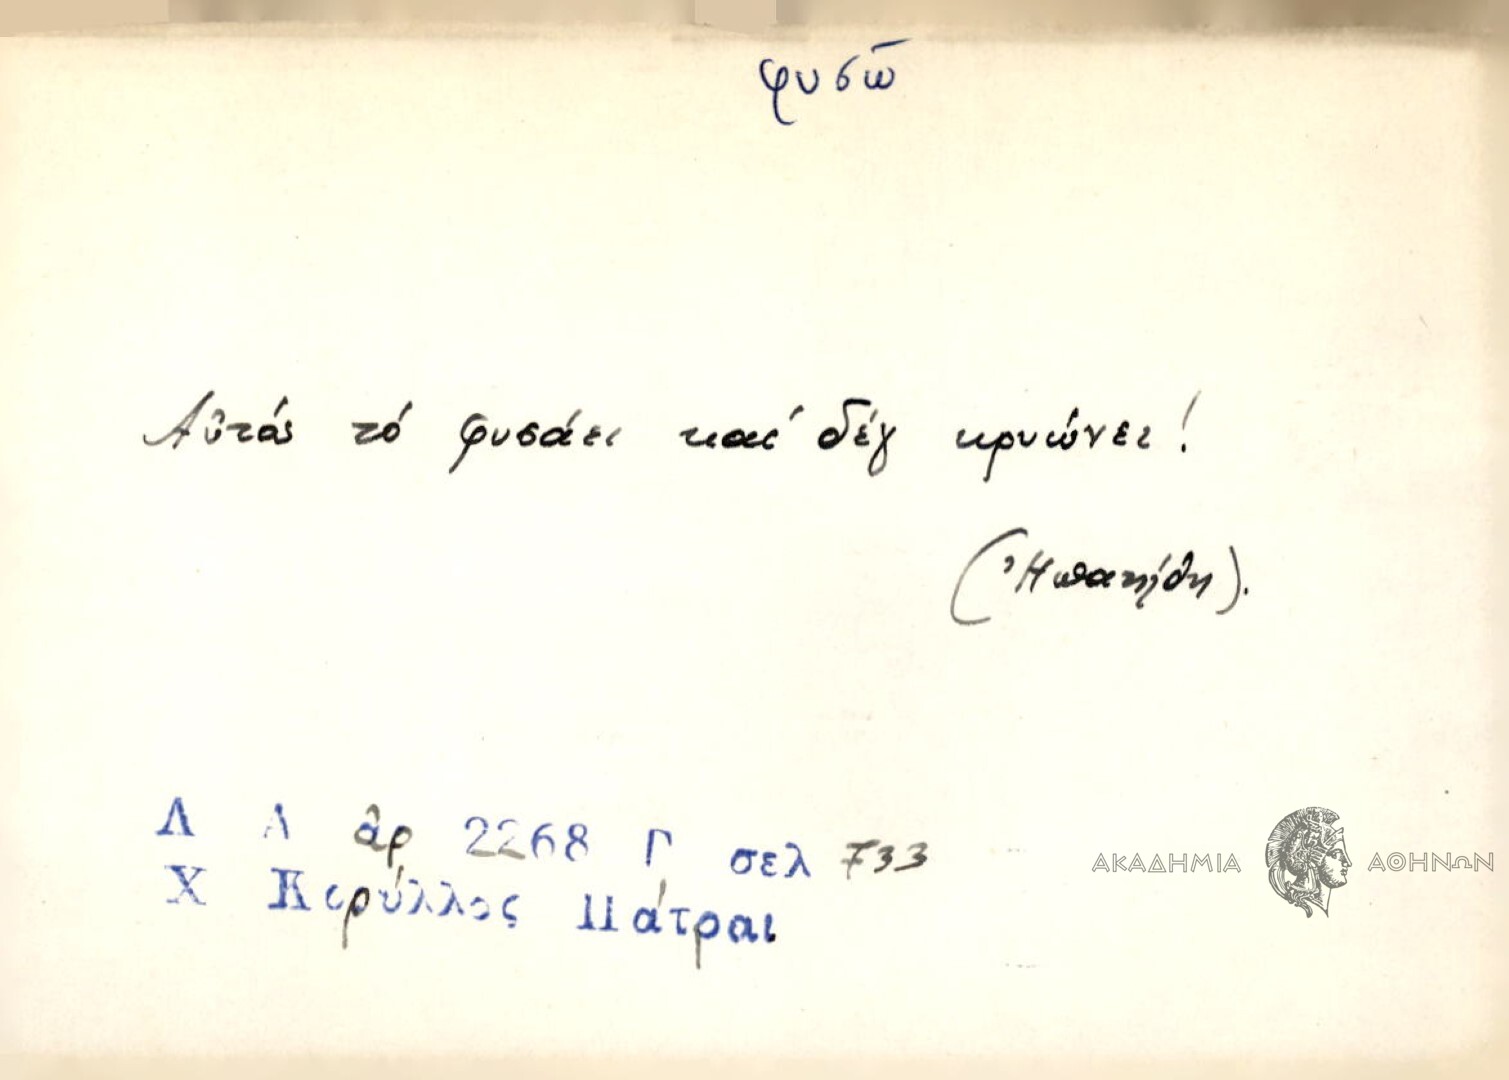 φυσῶ
Αὐτὸς τό φυσάει καί δέν κρυώνει!
Λ Α ἀρ 2268 Γ σελ 733
Χ Κορύλλος Πάτραι
ΑΚΑΔΗΜΙΑ ΑΘΗΝΩΝ